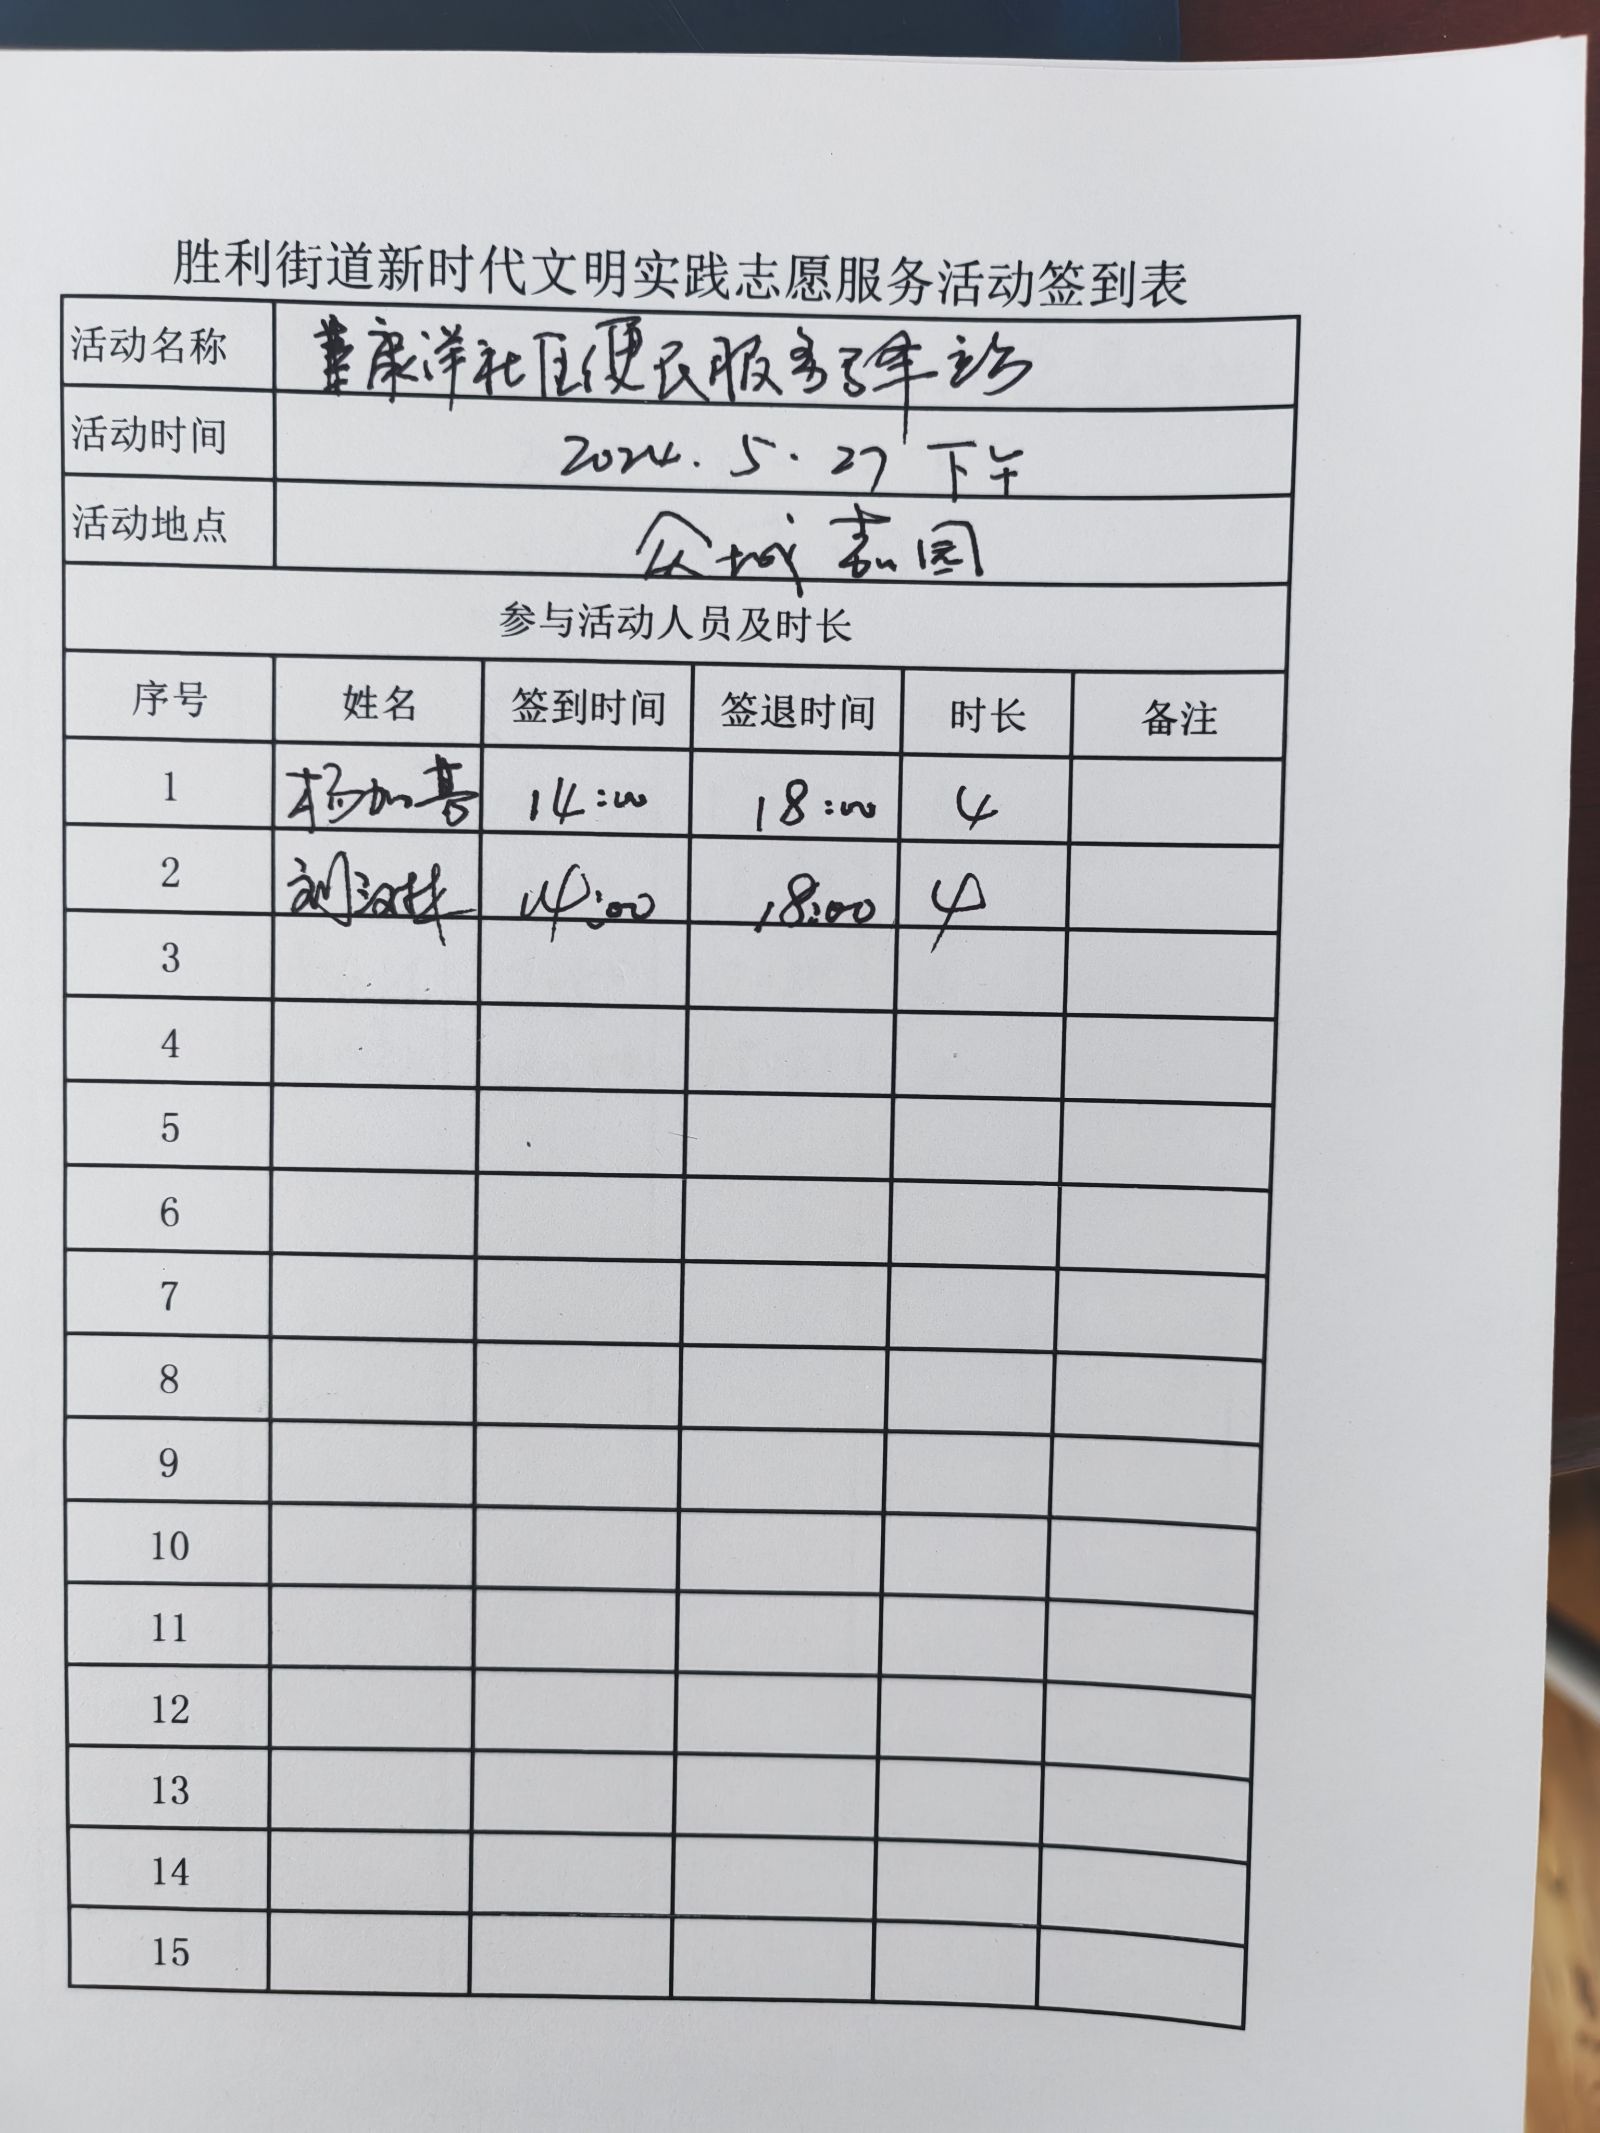 胜利街道新时代文明实践志愿服务活动签到表
活动名称 康洋社区便民服务
活动时间 2024.5.27 下午
活动地点 众城嘉园
参与活动人员及时长
序号 姓名 签到时间 签退时间 时长 备注
1 杨加 14:00 18:00 4
2 刘汉林 14:00 18:00 4
3
4
5
6
7
8
9
10
11
12
13
14
15